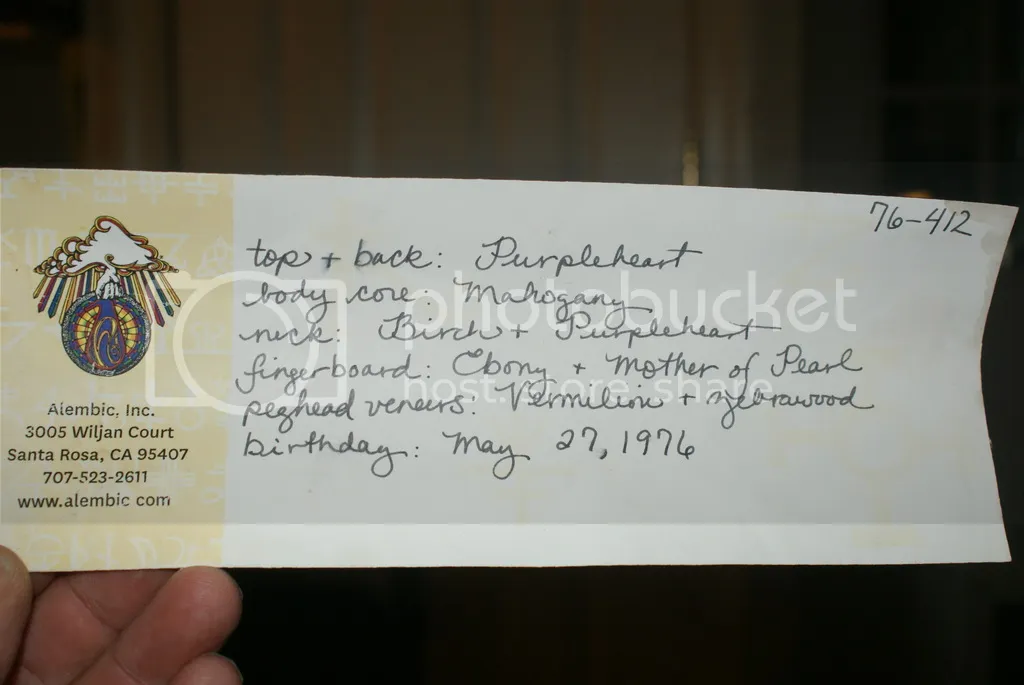 76-412
top + back: Purpleheart
body core: Mahogany
neck: Birch + Purpleheart
fingerboard: Ebony + Mother of Pearl
peghead veneers: Vermilion + zebrawood
birthday: May 27, 1976
Alembic, Inc.
3005 Wiljan Court
Santa Rosa, CA 95407
707-523-2611
www.alembic.com
photobucket
host. store. share.